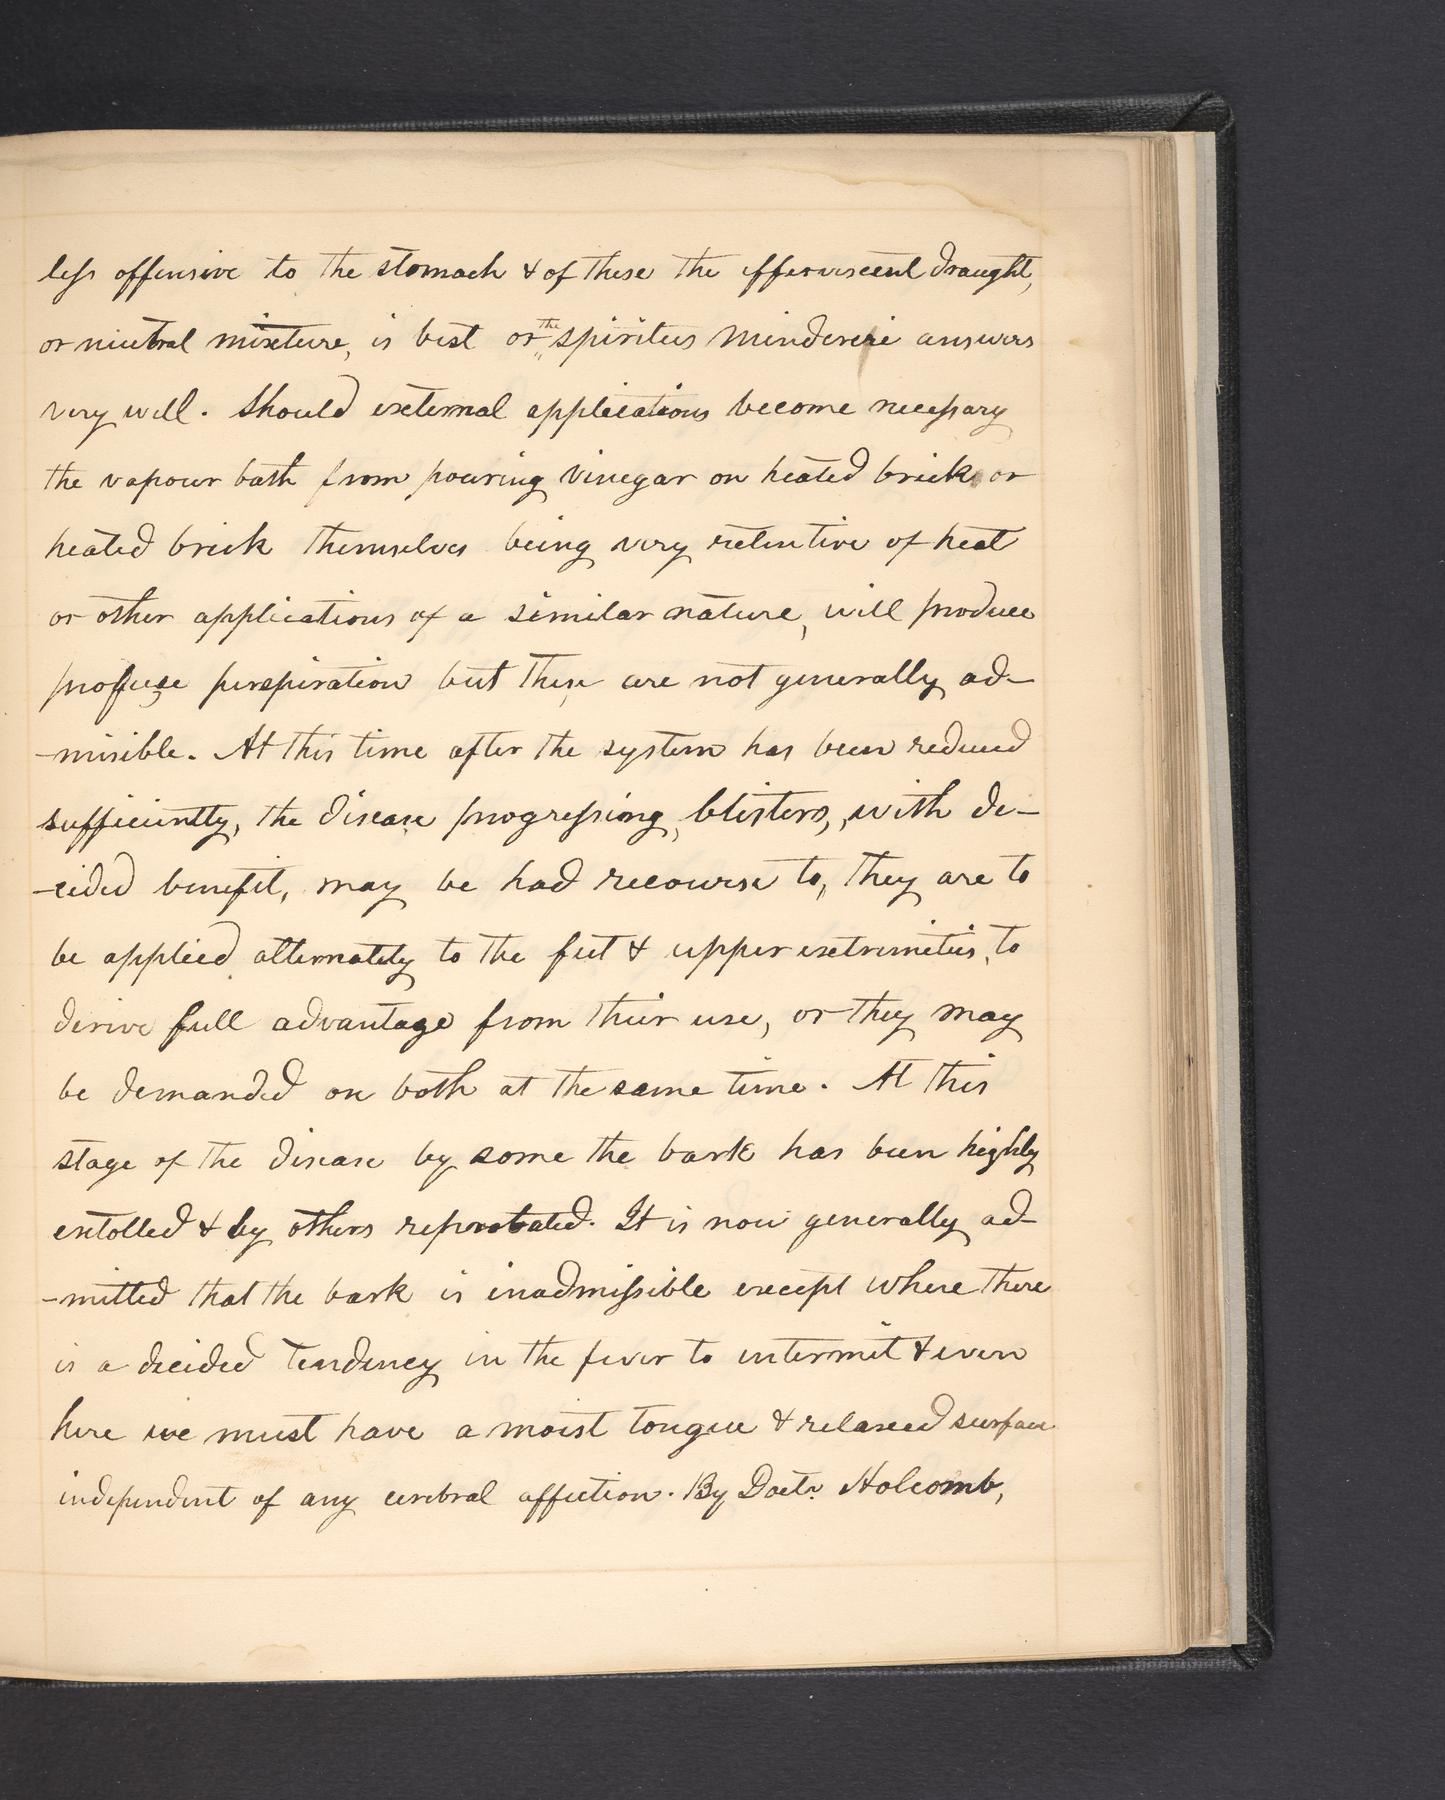 less offensive to the stomach & of these the effervescent draught,
or niutral mixture, is best or the spiritus Mindereri answers
very well. Should external applications become necessary
the vapour bath from pouring vinegar on heated brick or
heated brick themselves being very retentive of heat
or other applications of a similar nature, will produce
profuse perspiration but these are not generally ad-
-misible. At this time after the system has been reduced
sufficiently, the disease progressing, blisters, with de-
-cided benefit, may be had recourse to, they are to
be applied alternately to the feet & upper extremities, to
derive full advantage from their use, or they may
be demanded on both at the same time. At this
stage of the disease by some the bark has been highly
extolled & by others reprobated. It is now generally ad-
-mitted that the bark is inadmissible except where there
is a decided tendency in the fever to intermit & even
here we must have a moist tongue & relaxed surface
independent of any cerebral affection. By Doctr. Holcomb,